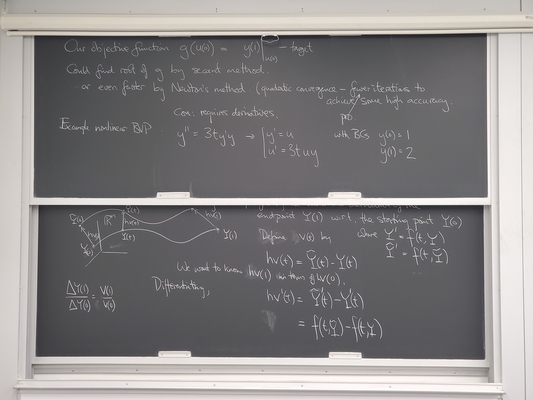 Our objective function g(u(0)) = y(1)|u(0) - target
Could find root of g by secant method.
or even faster by Newton's method (quadratic convergence - fewer iterations to
achieve some high accuracy.
prob
Con: requires derivatives.
Example nonlinear BVP:
y'' = 3ty'y → { y' = u
u' = 3tuy
with BCs y(0) = 1
y(1) = 2
endpoint Y(1) w.r.t. the starting point Y(0)
Define v(t) by where Y' = f(t,Y)
Ỹ' = f(t,Ỹ)
hv(t) = Ỹ(t) - Y(t)
We want to know hv(1) in terms of hv(0).
Differentiating,
hv'(t) = Ỹ'(t) - Y'(t)
= f(t,Ỹ) - f(t,Y)
ℝⁿ
hv(t)
Y(t)
Y(1)
ΔY(1)/ΔY(0) = v(1)/v(0)